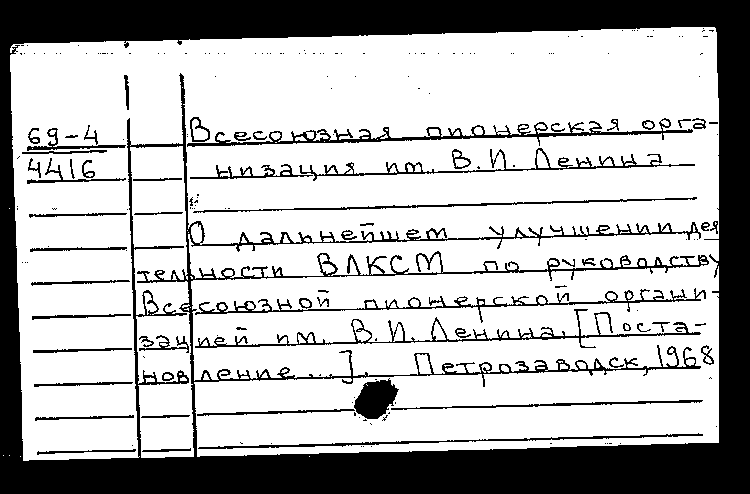 69-4
4416
Всесоюзная пионерская орга-
низация им. В.И. Ленина
О дальнейшем улучшении дея
тельности ВЛКСМ по руководству
Всесоюзной пионерской органи-
зацией им. В.И. Ленина. [Поста-
новление...]. Петрозаводск, 1968